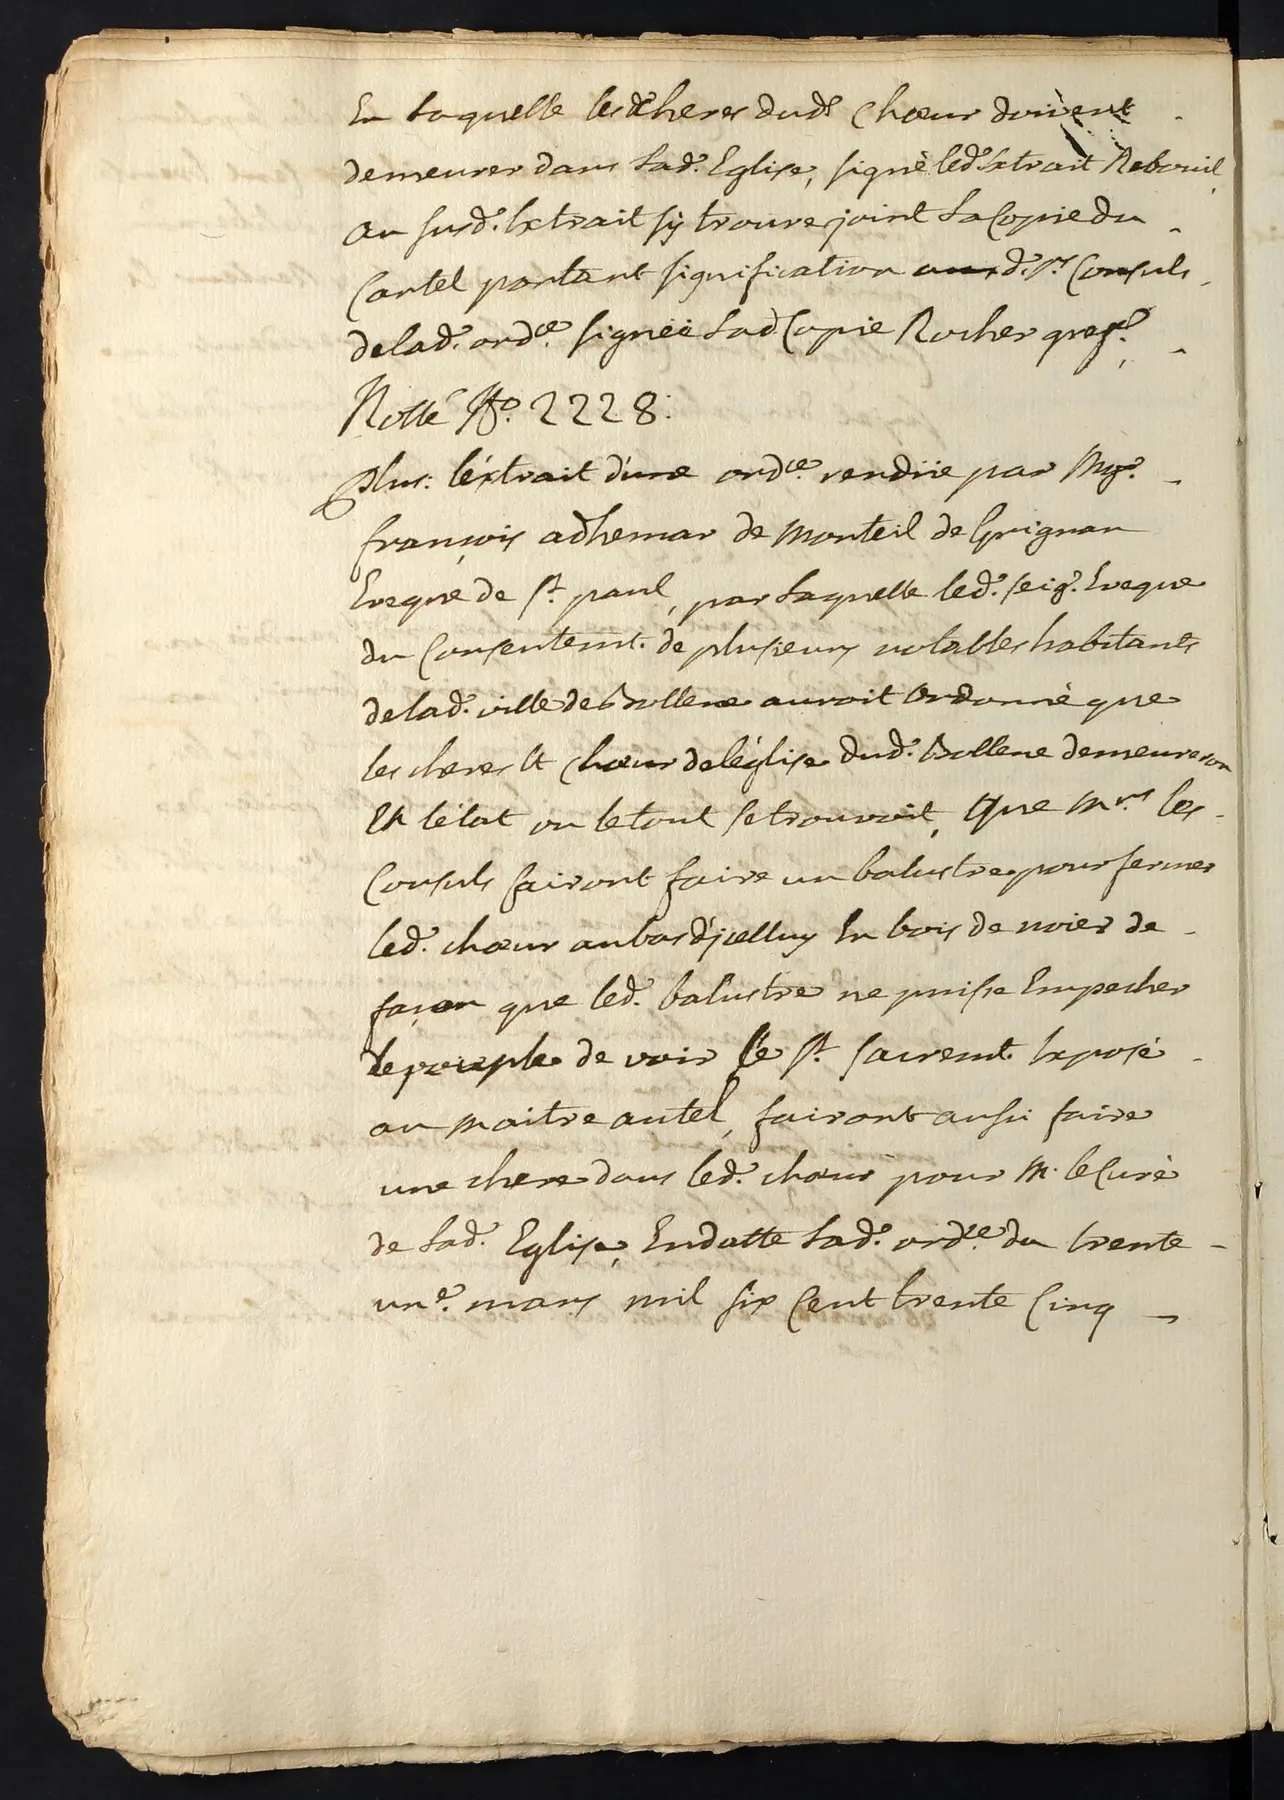 En laquelle lesd. cheres dud. Chœur doivent
demeurer dans lad.e Eglise, signé led. Extrait Reboul
au susd.t Extrait sÿ trouve joint la Copie du
Cartel portant signification auxd. s.rs Consuls
de lad.e ord.ce signéë lad Copie Rocher gref.r
Notté N.o 2228.
Plus: l'éxtrait d'une ord.ce rendüe par Mgr.
françois adhemar de Monteil de Grignan
Eveque de s.t paul, par laquelle led.t seig.r Eveque
du Consentemt. de plusieurs notables habitants
de lad.e ville de Bollene auroit Ordonné que
les cheres Et Chœur de l'église dud.t Bollene demeureron
En l'état ou le tout se trouvoit, Que Mrs. les
Consuls fairont faire un balustre pour fermer
led.t chœur au bas d'jcelluy En bois de noier de
façon que led.t balustre ne puisse Empecher
le peuple de voir le s.t sacremt. Exposé
au maitre autel, fairont aussi faire
une chere dans led.t chœur pour M. le Curé
de lad.e Eglise, En datte lad.e ord.ce du trente
un.e mars mil six Cent trente Cinq